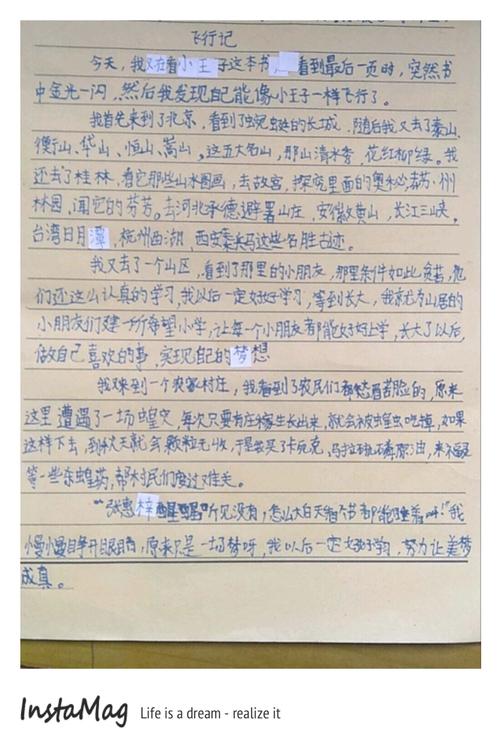 飞行记
今天，我又在看小王子这本书，看到最后一页时，突然书
中金光一闪，然后我发现自己能像小王子一样飞行了。
我首先来到了北京，看到了蜿蜒的长城，随后我又去了泰山、
衡山、华山、恒山、嵩山，这五大名山，那山清水秀，花红柳绿。我
还去了桂林，看它那些山水图画，去故宫，探究里面的奥秘，苏州
林园，闻它的芬芳。去河北承德避暑山庄，安徽黄山，长江三峡，
台湾日月潭，杭州西湖，西安兵马这些名胜古迹。
我又去了一个山区，看到了那里的小朋友，那里条件如此贫苦，他
们还这么认真的学习，我以后一定好好学习，等到长大，我就为山居的
小朋友们建一所希望小学，让每一个小朋友都能好好上学，长大了以后，
做自己喜欢的事，实现自己的梦想
我又来到一个农家村庄，我看到了农民们都愁眉苦脸的，原来
这里遭遇了一场蝗灾，每次只要有庄稼生长出来，就会被蝗虫吃掉，如果
这样下去，到秋天就会颗粒无收，于是我买了卡死克、马拉硫磷原油，来福灵
等一些杀蝗药，帮村民们度过难关。
“张惠梓醒醒听见没有，怎么大白天看个书都能睡着呀！”我
慢慢睁开眼睛，原来只是一场梦呀，我以后一定好好学习，努力让美梦
成真。
InstaMag Life is a dream - realize it